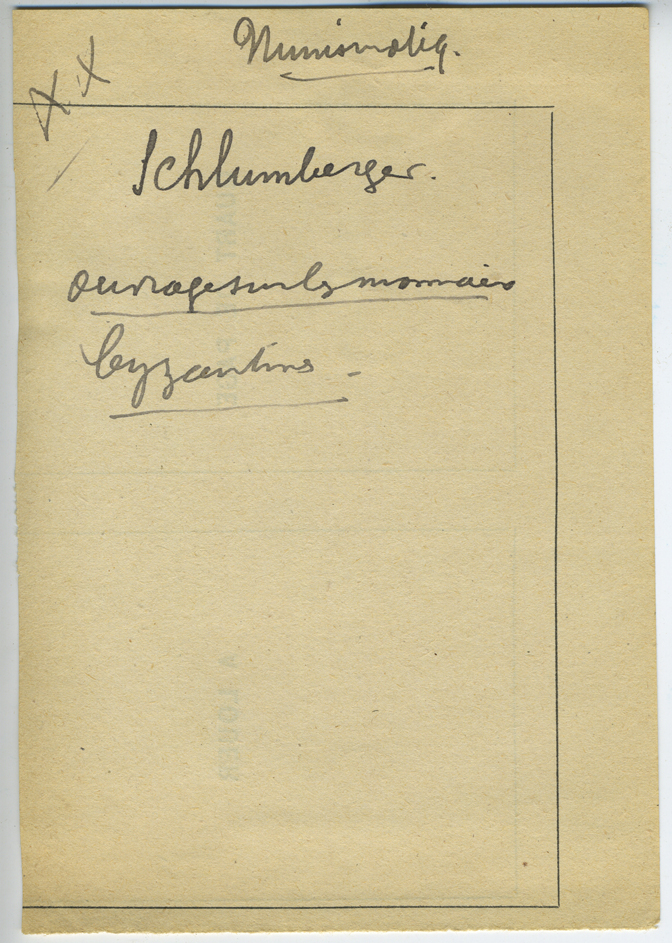 Numismatiq.
x x
Schlumberger.
ouvrage sur les monnaies
byzantins -
A LOUER